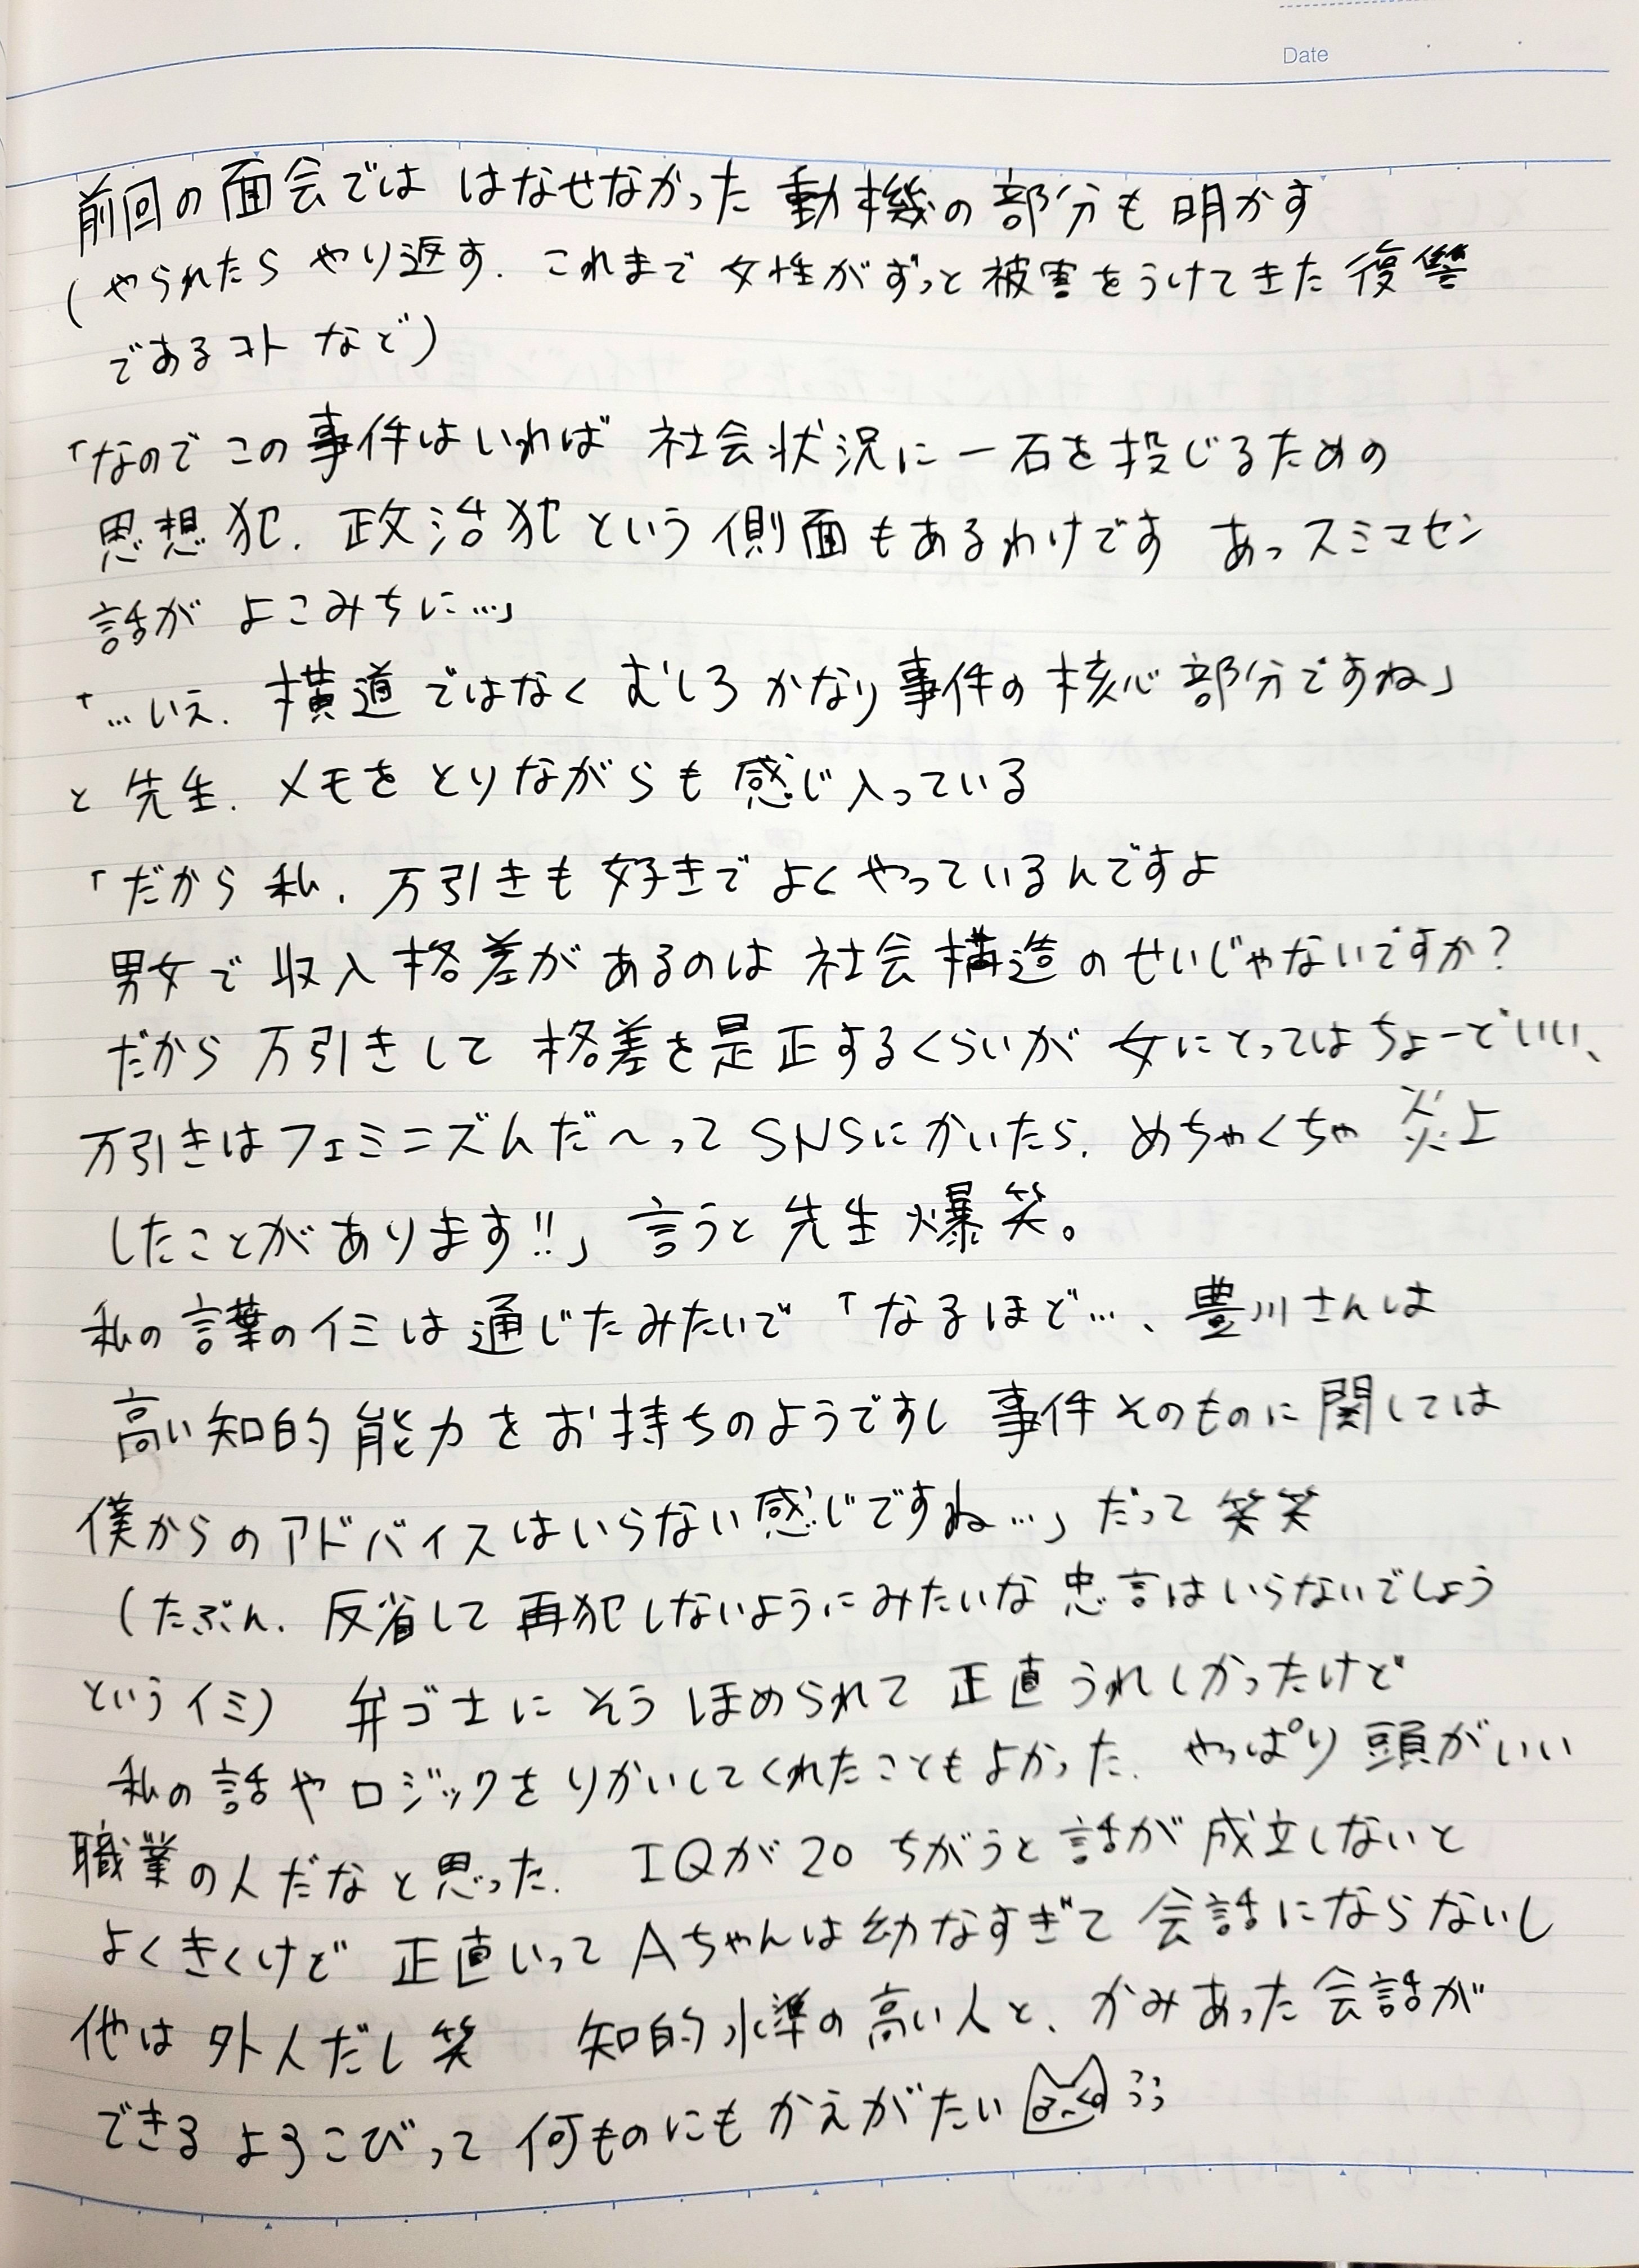 Date
前回の面会では はなせなかった 動機の部分も明かす
(やられたら やり返す. これまで 女性がずっと被害をうけてきた復讐
であるコト など)
「なので この事件はいわば 社会状況に一石を投じるための
思想犯. 政治犯という側面もあるわけです あっスミマセン
話が よこみちに…」
「…いえ. 横道ではなく むしろ かなり事件の核心部分ですね」
と 先生. メモをとりながらも 感じ入っている
「だから 私. 万引きも好きで よくやっているんですよ
男女で収入格差があるのは 社会構造のせいじゃないですか?
だから 万引きして 格差を是正するくらいが 女にとってはちょーどいい、
万引きはフェミニズムだ〜ってSNSにかいたら. めちゃくちゃ 炎上
したことがあります!!」 言うと先生爆笑。
私の言葉のイミは通じたみたいで 「なるほど…、豊川さんは
高い知的能力をお持ちのようですし 事件そのものに関しては
僕からのアドバイスはいらない感じですね…」だって 笑笑
(たぶん. 反省して 再犯しないようにみたいな 忠言はいらないでしょう
というイミ) 弁ゴ士に そう ほめられて 正直 うれしかったけど
私の話やロジックをりかいしてくれたこともよかった. やっぱり 頭がいい
職業の人だなと思った. IQが20 ちがうと話が成立しないと
よくきくけど 正直いって Aちゃんは幼なすぎて 会話にならないし
他は 外人だし 笑 知的水準の高い人と、かみあった会話が
できる よろこびって 何ものにも かえがたい